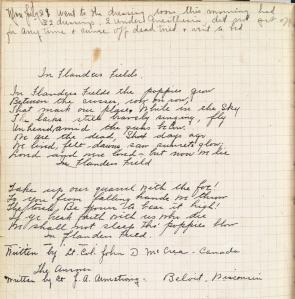 Mon July 28 went to the dressing room this morning had
22 dressings, 2 under Anesthesia, did not get off
for any time
In Flanders Fields.
In Flanders Fields the poppies grow
Between the crosses, row on row,
That mark our place, while in the Sky
The larks still bravely singing, fly
Unheard, amid the guns below,
We are the dead, Short days ago
We lived, felt dawn, saw sunset glow,
Loved and were loved & but now we lie
In Flanders Field
Take up our quarrel with the foe!
To you from falling hands we throw
The torch, Be yours to bear it high!
If ye break faith with us who die
We shall not sleep tho poppies blow
In Flanders Field.
Written by Lt. Col. John D. McCrea - Canada
The Answer
Written by Lt. J. A. Armstrong. Beloit, Wisconsin